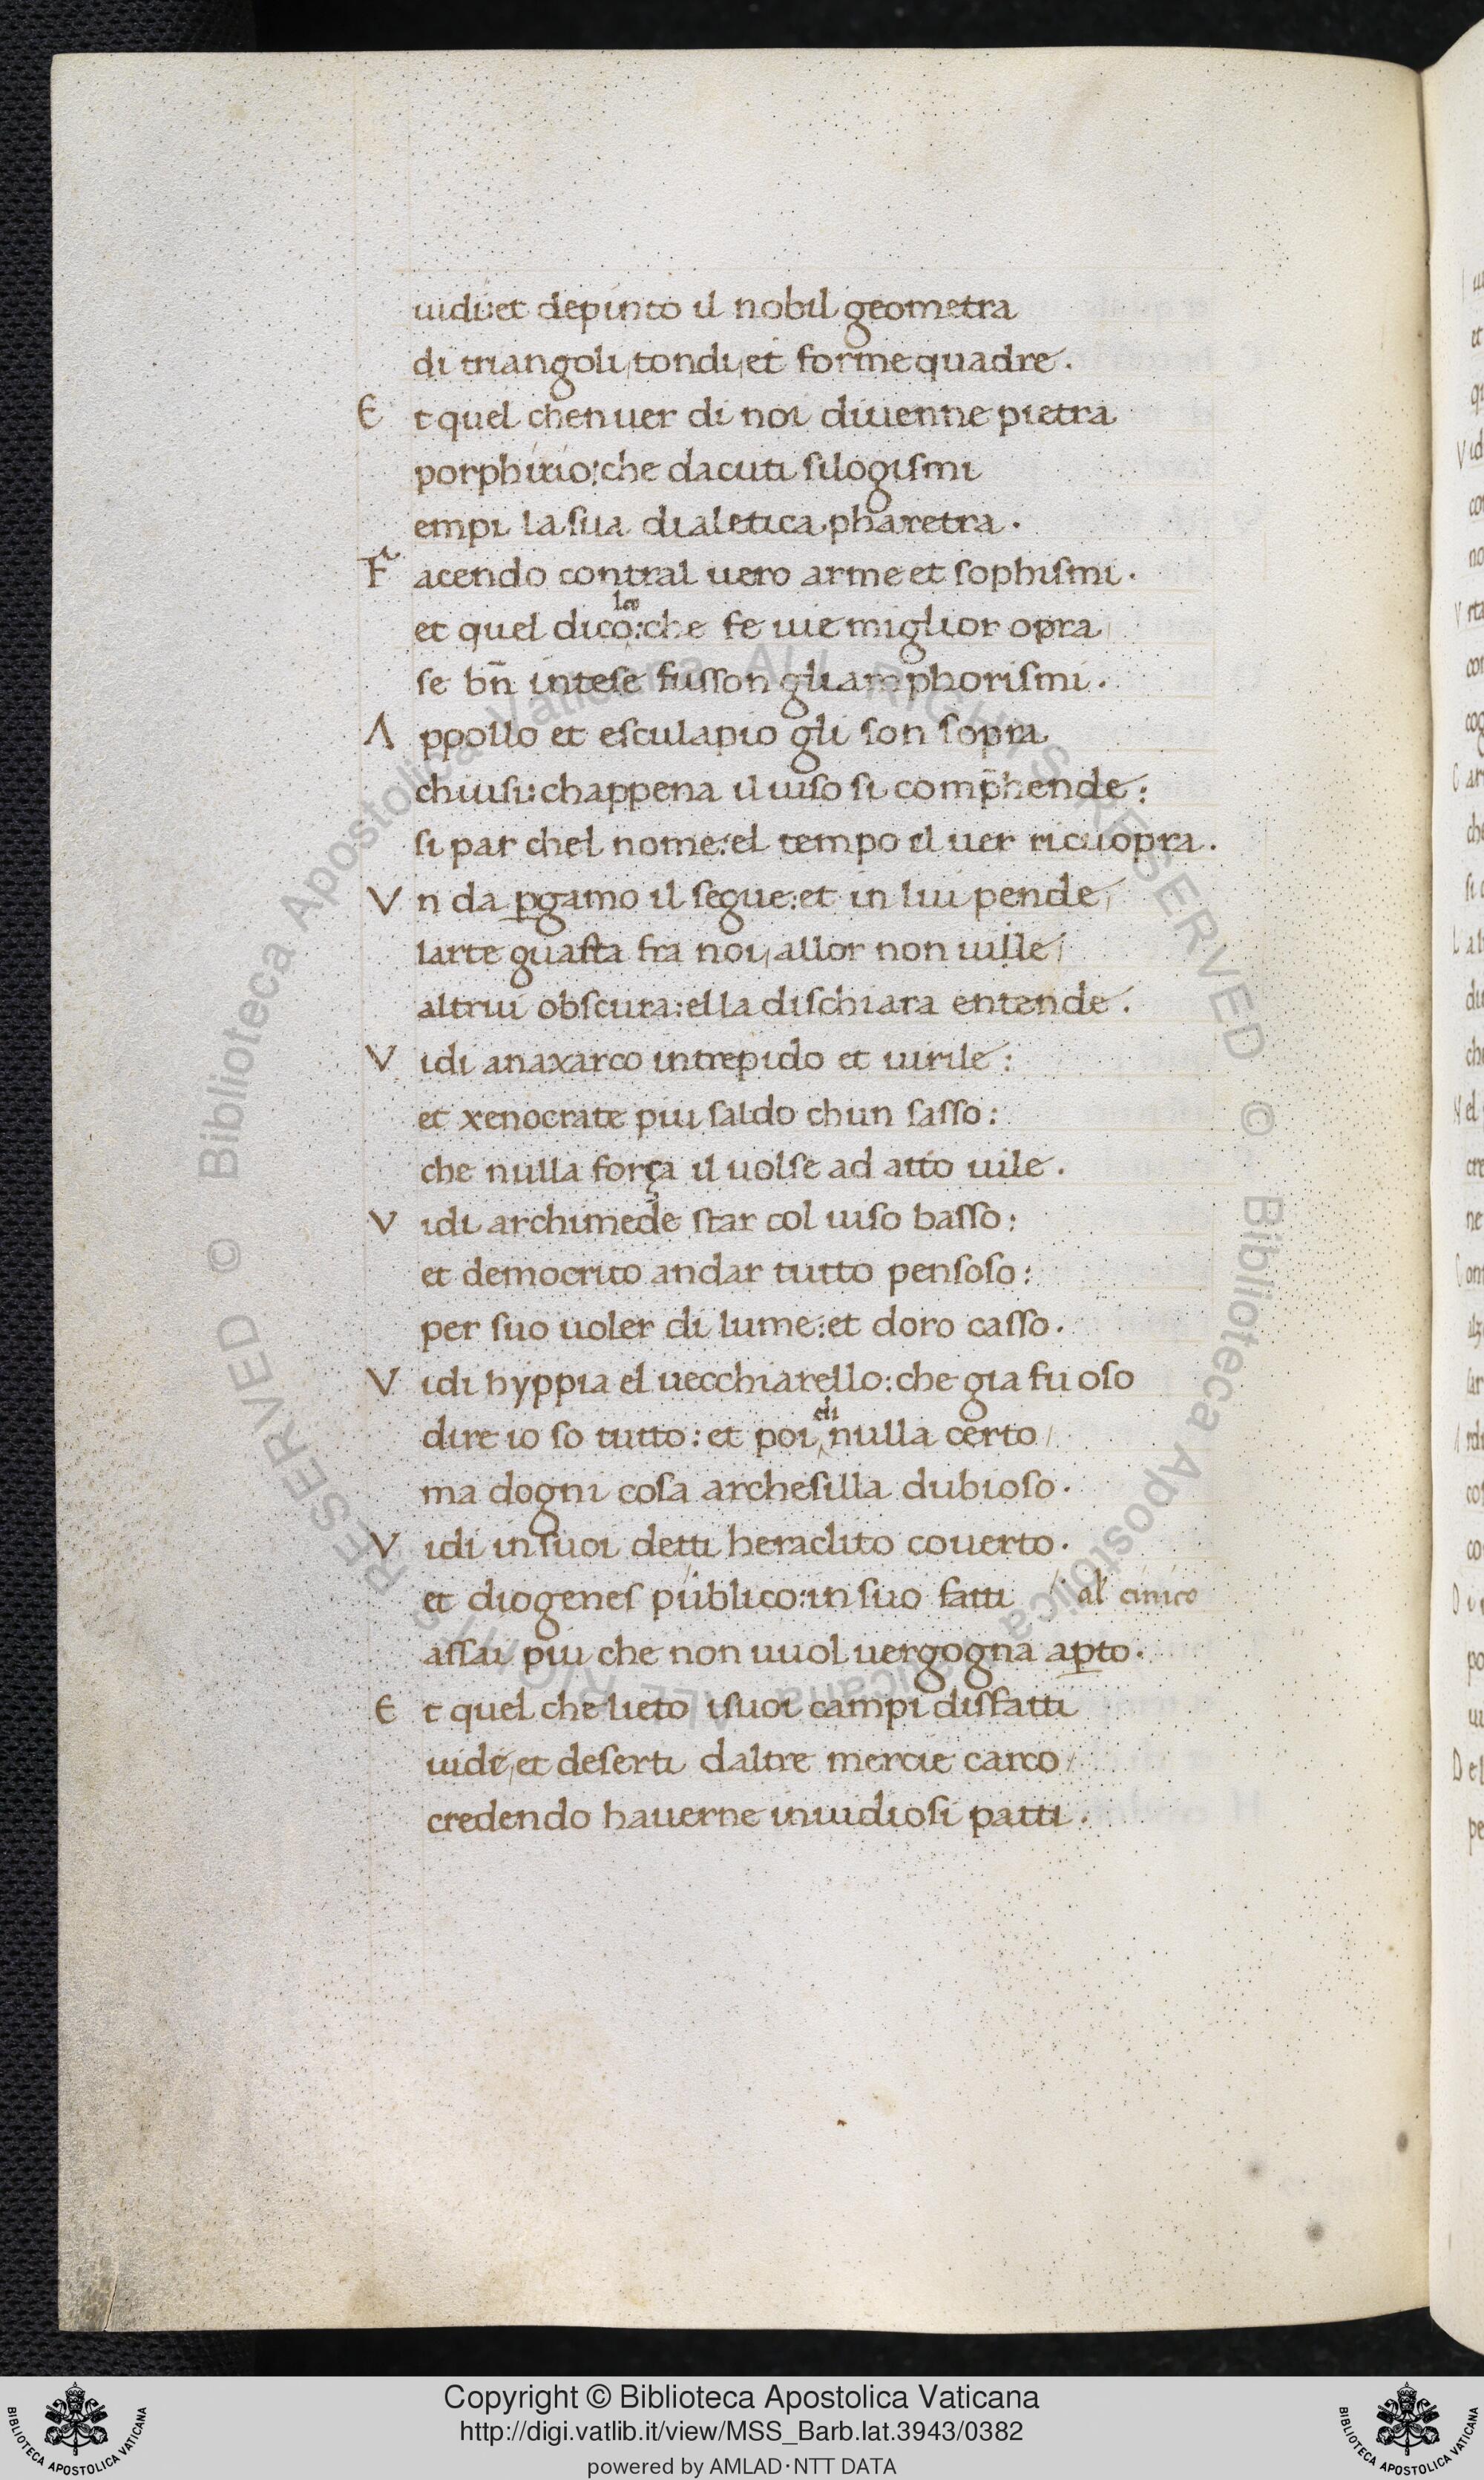 uidi:et depinto il nobil geometra
di triangoli,tondi,et forme quadre.
E t quel chen uer di noi diuenne pietra
porphirio:che dacuti silogismi
empi la sua dialetica pharetra.
F acendo contral uero arme et sophismi.
et quel di co:che fe uie miglior opra
se bn̄ intese fusson gli amphorismi.
A ppollo et esculapio gli son sopra
chiusi:chappena il uiso si comp̄hende:
si par chel nome:el tempo el uer ricuopra.
V n da ꝑgamo il segue:et in lui pende/
larte guasta fra noi,allor non uile/
altrui obscura:ella dischiara entende.
V idi anaxarco intrepido et uirile:
et xenocrate piu saldo chun sasso:
che nulla força il uolse ad atto uile.
V idi archimede star col uiso basso:
et democrito andar tutto pensoso:
per suo uoler di lume:et doro casso.
V idi hyppia el uecchiarello:che gia fu oso
di
dire io so tutto:et poi nulla certo/
ma dogni cosa archesilla dubioso.
V idi in suoi detti heraclito couerto.
et diogenes publico:in suo fatti al' cinico
assai piu che non uuol uergogna aꝑto.
E t quel che lieto i suoi campi disfatti
uide,et deserti daltre mercie carco/
credendo hauerne inuidiosi patti.
© Biblioteca Apostolica Vaticana ALL RIGHTS RESERVED © Biblioteca Apostolica Vaticana ALL RIGHTS RESERVED
BIBLIOTECA APOSTOLICA VATICANA
Copyright © Biblioteca Apostolica Vaticana
http://digi.vatlib.it/view/MSS_Barb.lat.3943/0382
powered by AMLAD·NTT DATA
BIBLIOTECA APOSTOLICA VATICANA